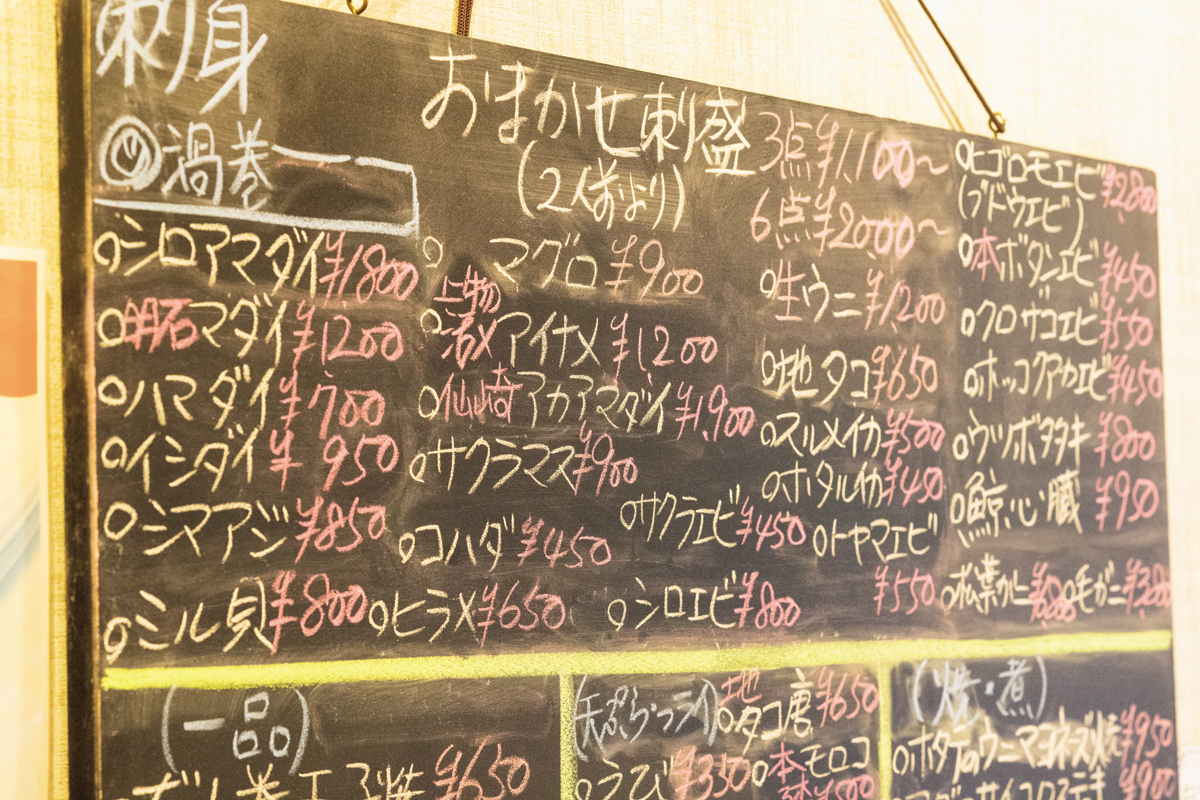 刺身
渦巻
おまかせ刺盛
(2人前より)
3点¥1,100～
6点¥2000～
シロアマダイ¥1800
明石マダイ¥1200
ハマダイ¥700
イシダイ¥950
シマアジ¥850
ミル貝¥800
マグロ¥900
アイナメ¥1200
仙崎アカアマダイ¥1,900
サクラマス¥900
コハダ¥450
ヒラメ¥650
サクラエビ¥450
シロエビ¥800
生ウニ¥1,200
地タコ¥650
スルメイカ¥500
ホタルイカ¥450
トヤマエビ
¥550
ヒゴロモエビ¥2800
(ブドウエビ)
本ボタンエビ¥450
クロザコエビ¥550
ホッコクアカエビ¥450
ウツボタタキ¥800
鯨心臓¥950
松葉ガニ
毛ガニ
(一品)
¥650
(天ぷら・フライ)
地タコ唐¥650
¥350
本モロコ
(焼・煮)
ホタテのウニマヨネーズ焼¥950